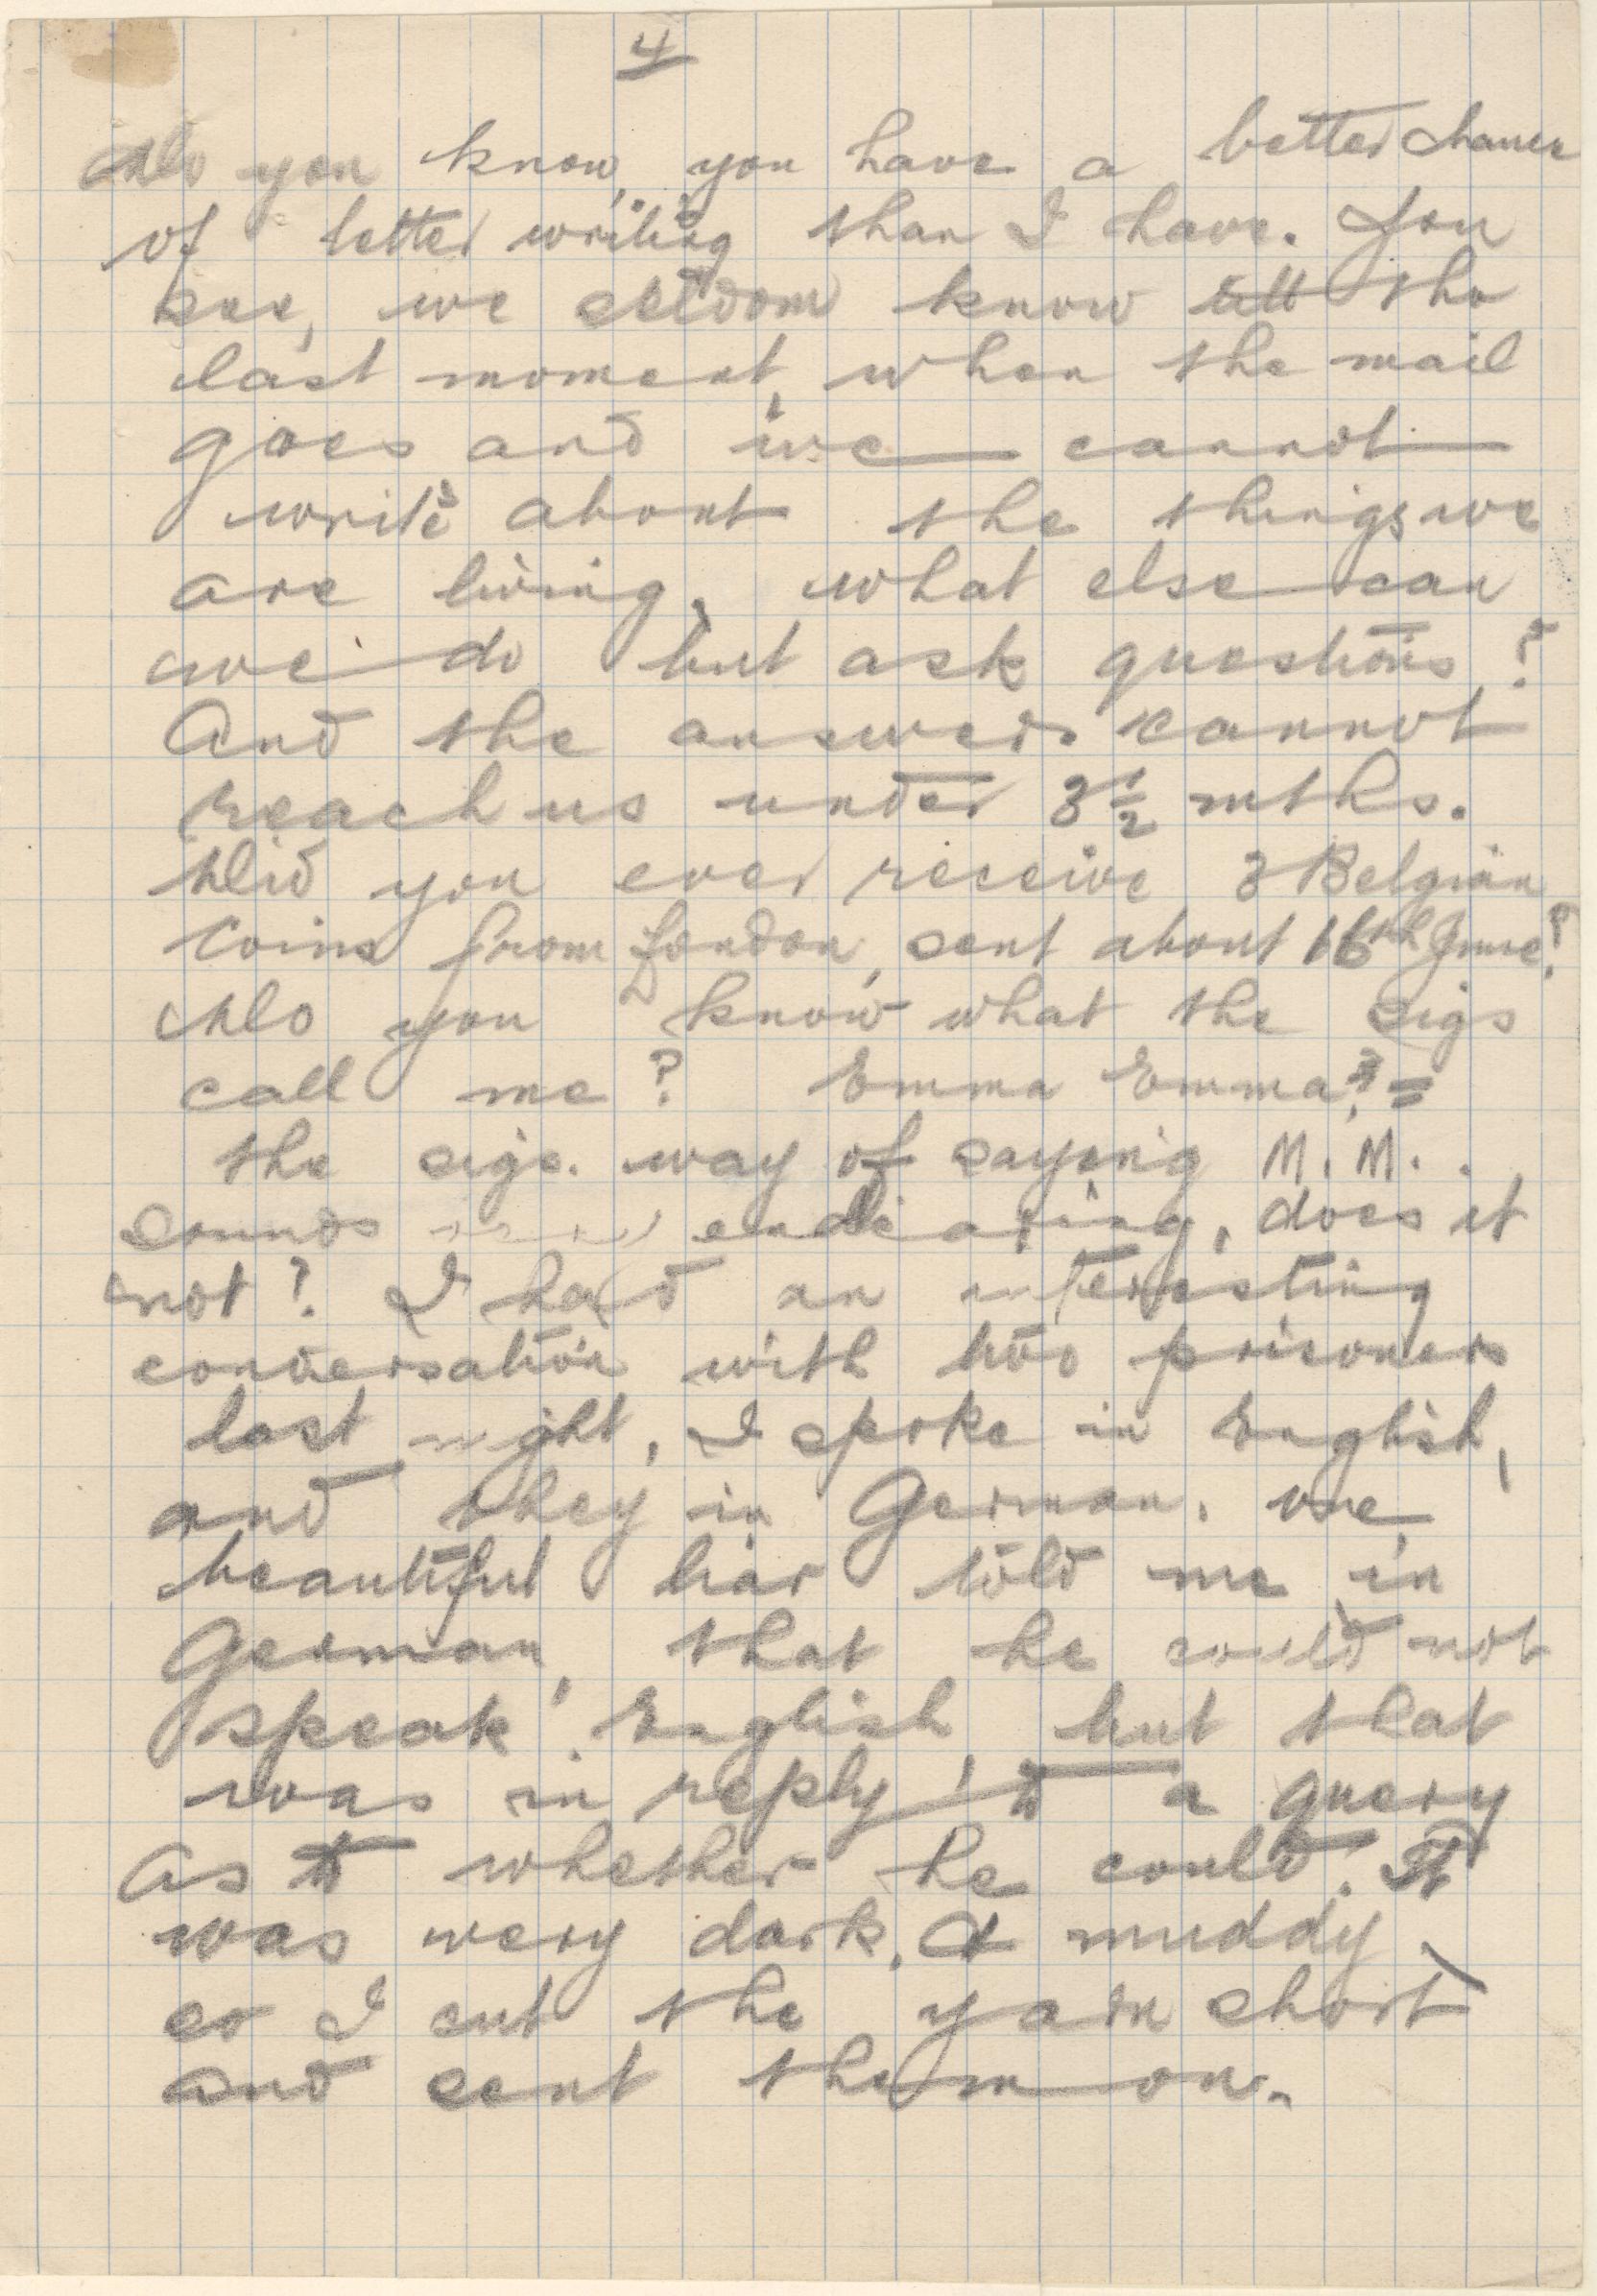 4
Do you know, you have a better chance
of letter writing than I have. You
see, we seldom know till the
last moment, when the mail
goes and we cannot
write about the things we
are living, what else can
we do but ask questions?
And the answers cannot
reach us under 3 1/2 mths.
Did you ever receive 3 Belgian
Coins from London, sent about 16th June?
Do you know what the sigs
call me? Emma Emma? =
the sigs. way of saying M. M. .
Sounds endearing, does it
not? I had an interesting
conversation with two prisoners
last night, I spoke in English,
and they in German. one
beautiful liar told me in
German, that he could not
speak English, but that
was in reply to a query
as to whether he could. It
was very dark, & muddy,
so I cut the yarn short
and sent them on.